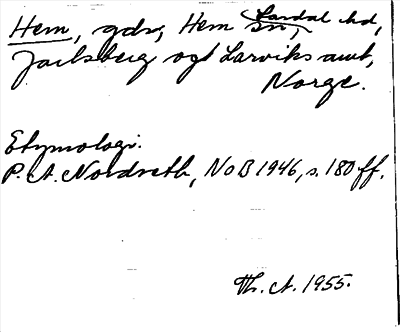 Hem, gdr, Hem sn, Lardal hd,
Jarlsberg ogt Larviks amt,
Norge.
Etymologi.
P. A. Nordseth, NoB 1946, s. 180 ff.
Th. A. 1955.